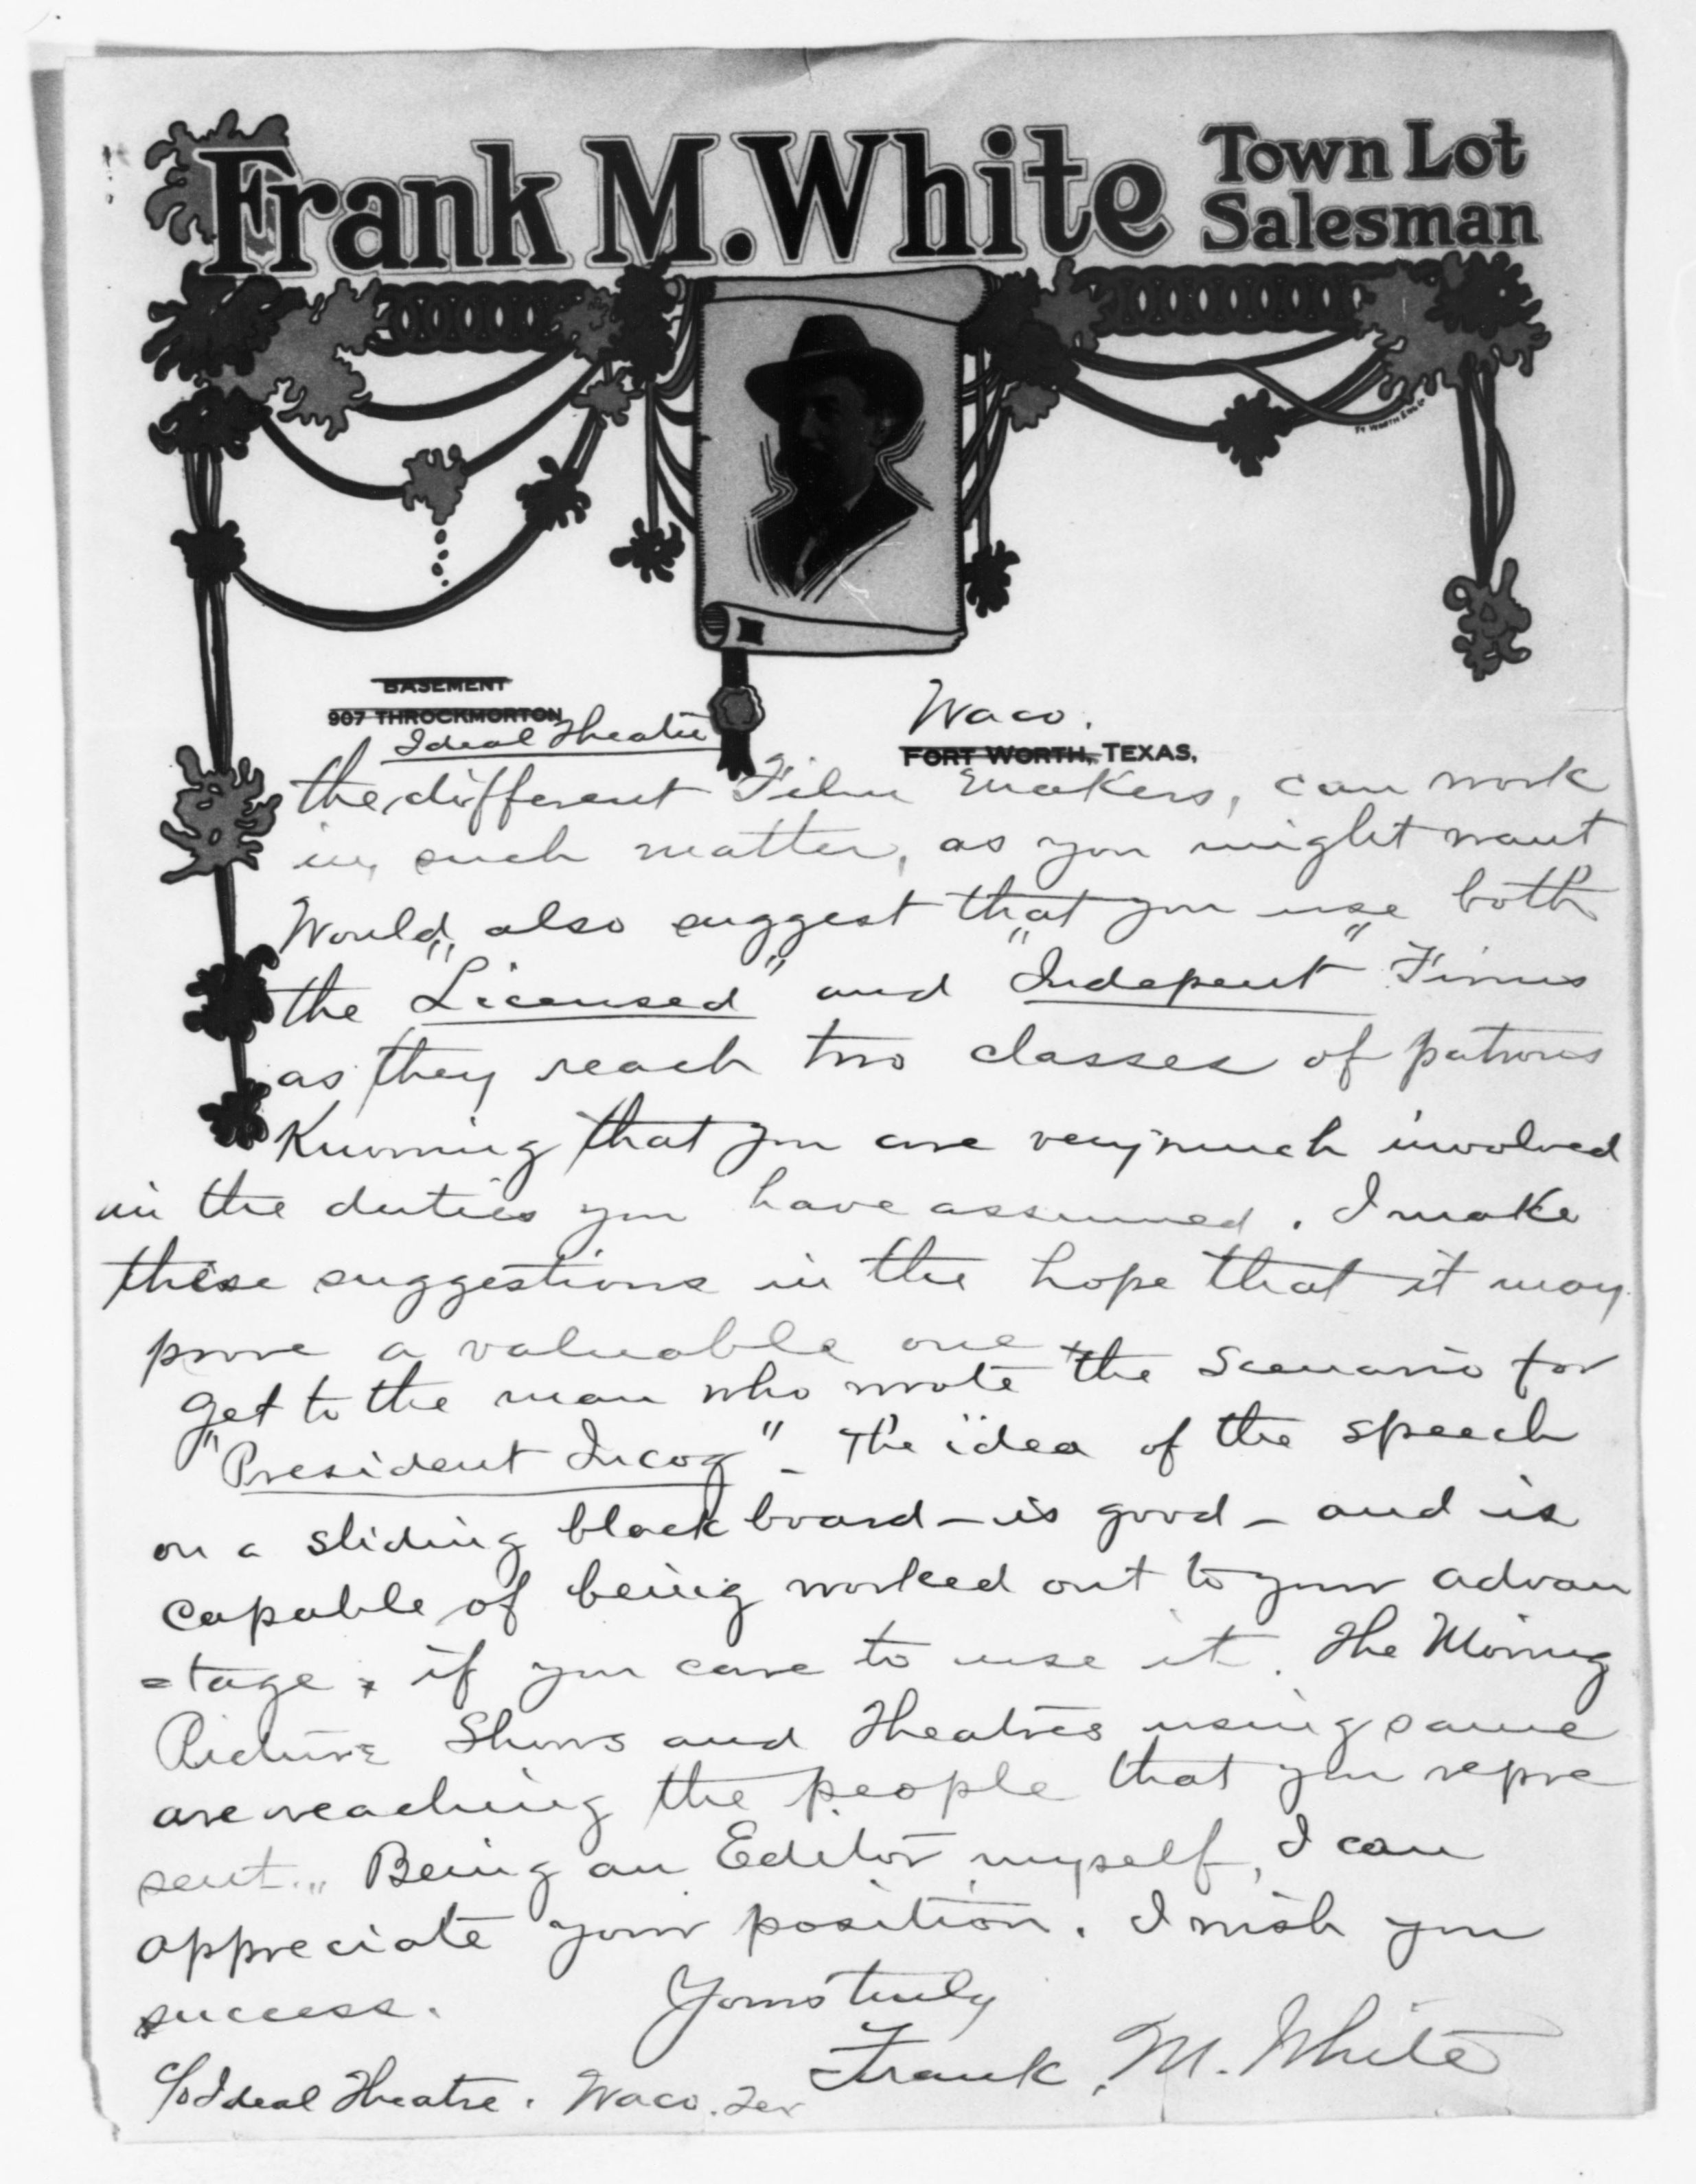 Frank M. White Town Lot Salesman
FT WORTH ENG Co
BASEMENT
907 THROCKMORTON
Ideal Theatre
Waco.
FORT WORTH, TEXAS,
the different Film Makers, can work
in, such matter, as you might want
Would also suggest that you use both
the "Licensed" and "Indepent" Firms
as they reach two classes of patrons
Knowing that you are very much involved
in the duties you have assumed. I make
these suggestions in the hope that it may
prove a valuable one
get to the man who wrote the Scenario for
"President Incog" - The idea of the speech
on a sliding black board - is good - and is
capable of being worked out to your advan
=tage, if you care to use it. The Moving
Picture Shows and Theatres using same
are reaching the people that you repre
sent.,, Being an Editor myself, I can
appreciate your position. I wish you
success. Yours truly
Frank. M. White
c/o Ideal Theatre. Waco. Tex